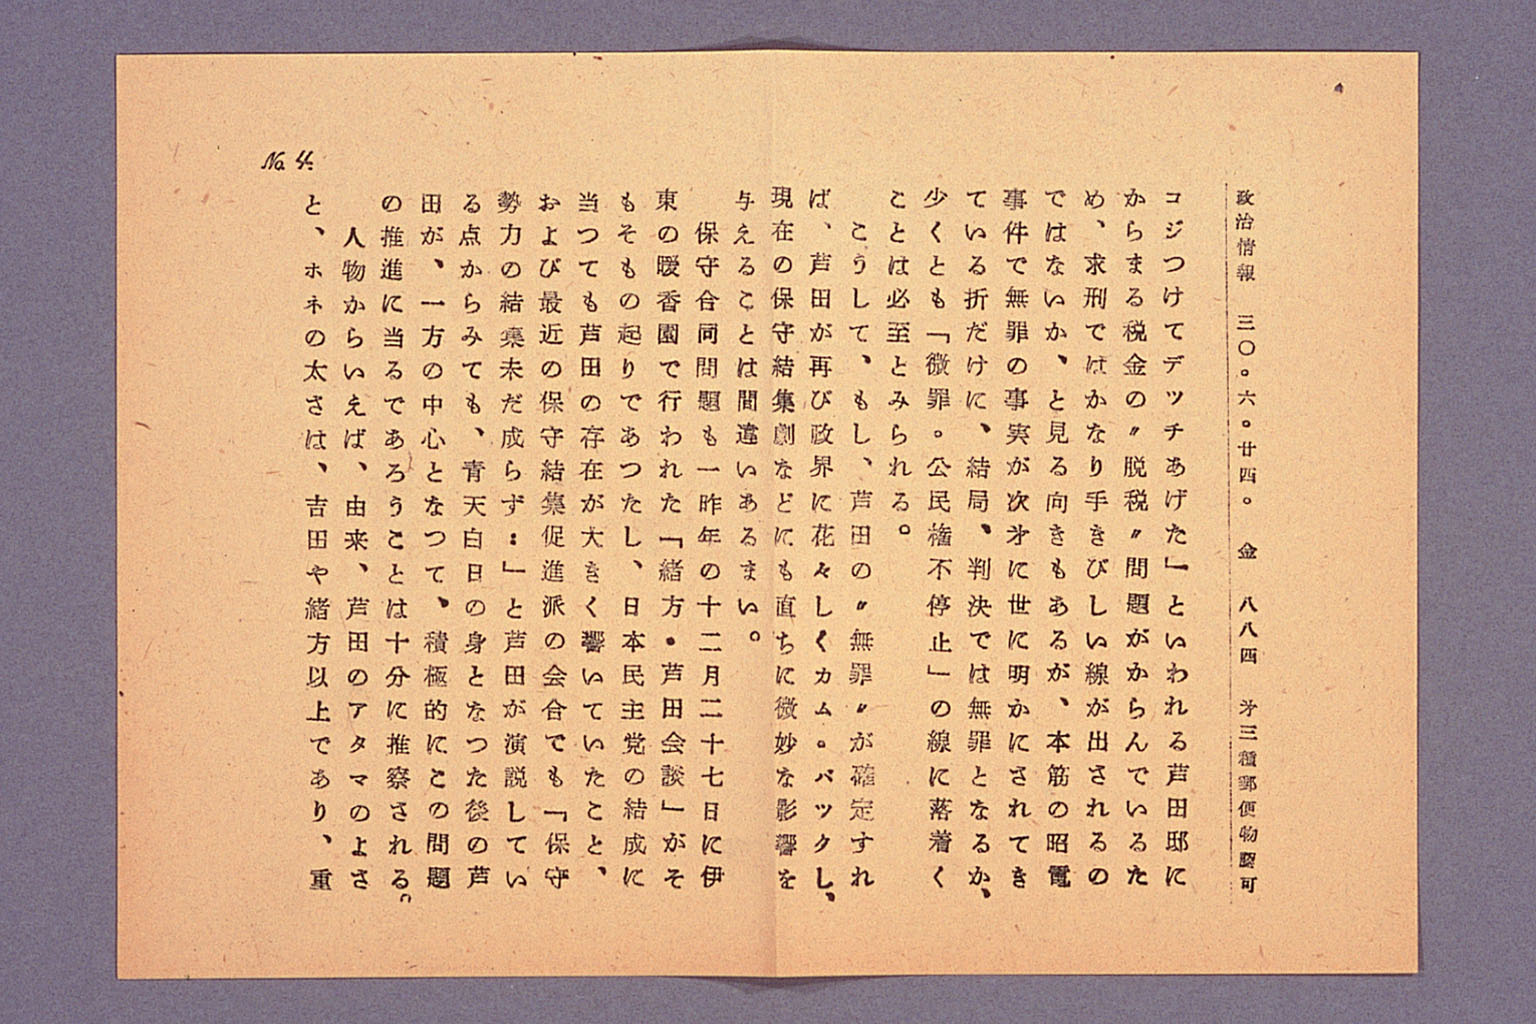 政治情報 三〇。六。廿四。 金 八八四 㐧三種郵便物認可
コジつけてデッチあげた」といわれる芦田邸に
からまる税金の〃脱税〃問題がからんでいるた
め、求刑ではかなり手きびしい線が出されるの
ではないか、と見る向きもあるが、本筋の昭電
事件で無罪の事実が次㐧に世に明かにされてき
ている折だけに、結局、判決では無罪となるか、
少くとも「微罪。公民権不停止」の線に落着く
ことは必至とみられる。
こうして、もし、芦田の〃無罪〃が確定すれ
ば、芦田が再び政界に花々しくカム。バックし、
現在の保守結集劇などにも直ちに微妙な影響を
与えることは間違いあるまい。
保守合同問題も一昨年の十二月二十七日に伊
東の暖香園で行われた「緒方・芦田会談」がそ
もそもの起りであつたし、日本民主党の結成に
当つても芦田の存在が大きく響いていたこと、
および最近の保守結集促進派の会合でも「保守
勢力の結集未だ成らず：」と芦田が演説してい
る点からみても、青天白日の身となつた後の芦
田が、一方の中心となつて、積極的にこの問題
の推進に当るであろうことは十分に推察される。
人物からいえば、由来、芦田のアタマのよさ
と、ホネの太さは、吉田や緒方以上であり、重
No. 4.